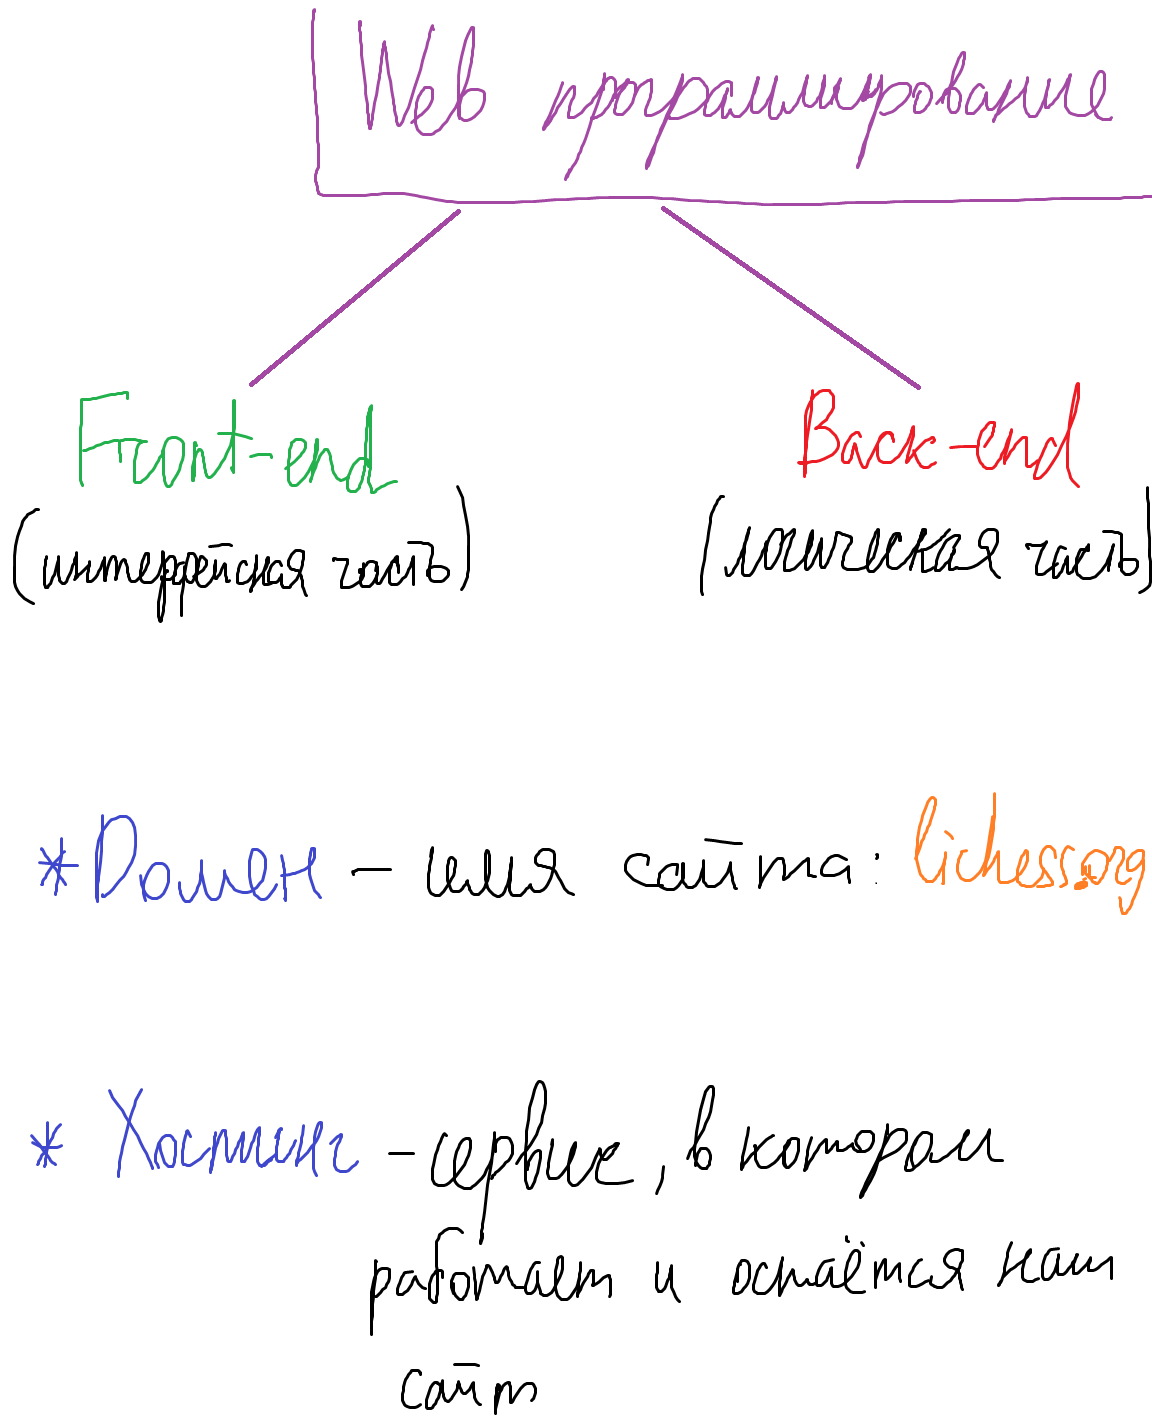 Web программирование
Front-end
Back-end
(интерфейсная часть)
(логическая часть)
*Домен – имя сайта: lichess.org
* Хостинг – сервис, в котором
работает и остаётся наш
сайт